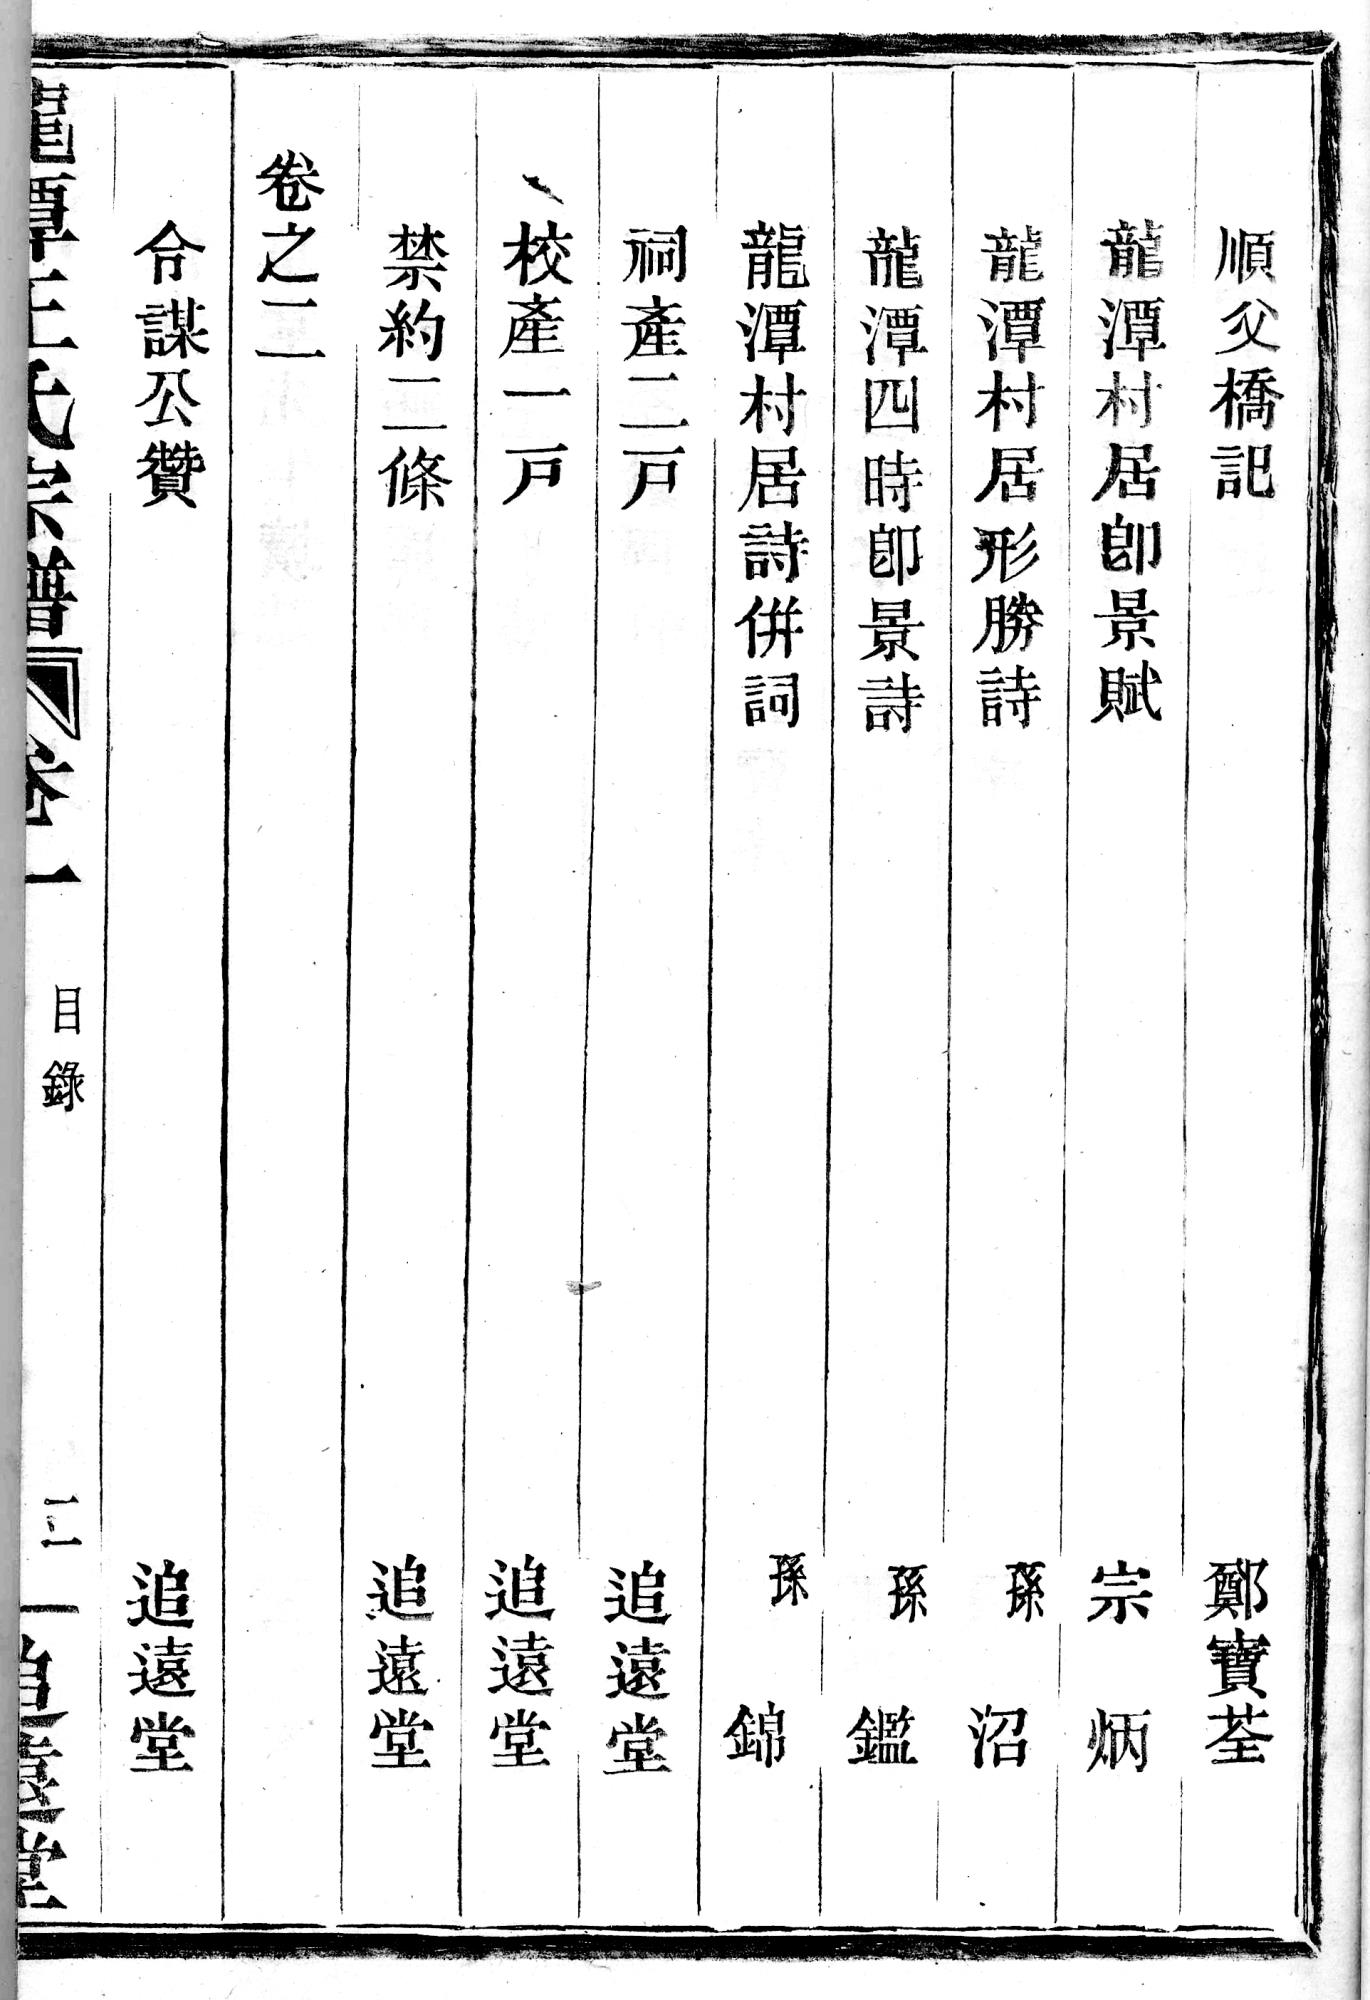 順父橋記 鄭寶荃
龍潭村居卽景賦 宗炳
龍潭村居形勝詩 孫沼
龍潭四時卽景詩 孫鑑
龍潭村居詩併詞 孫錦
祠產二戸 追遠堂
校產一戸 追遠堂
禁約二條 追遠堂
卷之二
令謀公贊 追遠堂
龍潭王氏宗譜 卷一 目錄 二 追遠堂